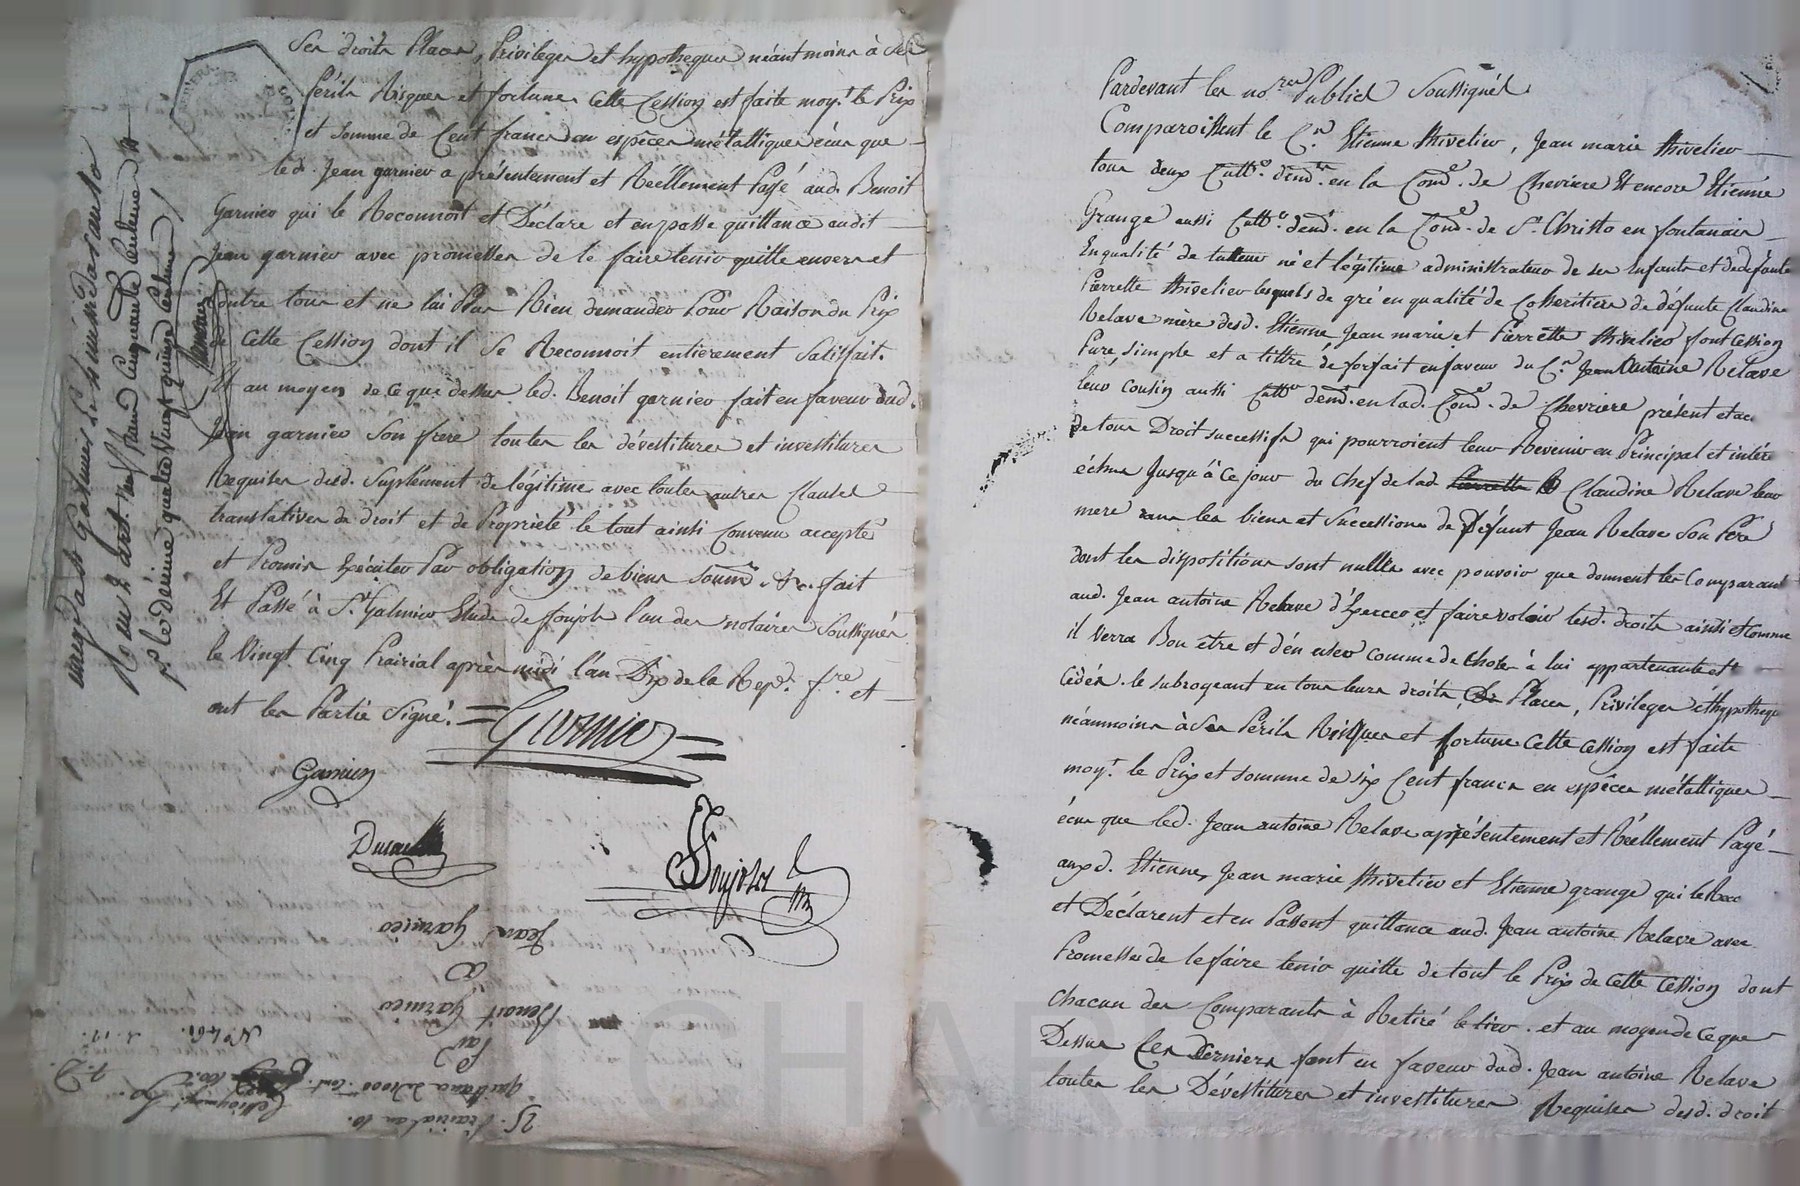 Ses droits Places, Privileges et hypotheques néantmoins à Ses
Périls Risques et fortunes Cette Cession est faite moy.t le Prix
et Somme de Cent francs en espèces métalliques écus que
led. Jean garnier a présentement et Réellement Payé aud. Benoit
Garnier qui le Reconnoit et Déclare et en passe quittance audit
Jean garnier avec promesses de le faire tenir quitte envers et
Contre tous et ne lui Plus Rien demander Pour Raison du Prix
de Cette Cession dont il Se Reconnoit entièrement Satisfait.
Et au moyen de ce que dessus led. Benoit garnier fait en faveur dud.
Jean garnier Son frere toutes les dévestitures et investitures
Requises dud. Suplément de légitime avec toutes autres Clauses
translatives de droit et de Propriété le tout ainsi Convenu accepté
et Promis Exécuter Par obligation de biens soum. &c. fait
Et Passé à St. Galmier Etude de foujols l'un des notaires Soussignés
le Vingt Cinq Prairial après midi l'an Dix de la Rep. f.re et
ont les Partie Signé.
Garnier
Garnier
Foujols
Jean Garnier
à
Benoit Garnier
Par
25. Prairial an 10.
N.o 461.
Enregistré à St Galmier le
10 an
cinquante centimes
p.r le décime quatre vingt quinze centimes
Pardevant les no.res Publics Soussignés
Comparoissent le C.n Etienne thivelier, Jean marie thivelier
tous deux Cult.r dem.t en la Com.e de Chevriere Et encore Etienne
Grange aussi Cult.r dem.t en la Com.e de St. Christo en fontanais
En qualité de tutteur né et légitime administrateur de ses Enfants et de défunte
Pierrette thivelier lesquels de gré en qualité de Coheritiers de défunte Claudine
Relave mère desd. Etienne Jean marie et Pierrette thivelier font Cession
Pure, simple et a tittre de forfait en faveur du C.n Jean Antoine Relave
leur cousin aussi Cult.r dem.t en lad. Com.e de Chevriere présent et ac
de tous Droit successifs qui pourroient leur Revenir en Principal et intére
échus Jusqu'à ce jour du chef de lad Pierrette Claudine Relave leur
mere sur les biens et Successions de Défunt Jean Relave Son Père
dont les dispositions sont nulles avec pouvoir que donnent les Comparant
aud. Jean antoine Relave d'Exercer et faire valoir lesd. droits ainsi et Comme
il Verra Bon être et d'en user comme de Choses à lui appartenante et
Cédés. le subrogeant en tous leurs droits, Places, Privileges et hypotheque
néanmoins à Ses Périls Risques et fortunes Cette cession est faite
moy.t le Prix et somme de six Cent francs en espèces métalliques
écus que led. Jean antoine Relave a présentement et Réellement Payé
auxd. Etienne, Jean marie thivelier et Etienne grange qui le Rec
et Déclarent et en Passent quittance aud. Jean antoine Relave avec
Promesses de le faire tenir quitte de tout le Prix de Cette Cession dont
Chacun des Comparants à Retiré le tier. et au moyen de ce que
Dessus Ces Derniers font en faveur dud. Jean antoine Relave
toutes les Dévestitures et investitures Requises desd. droit